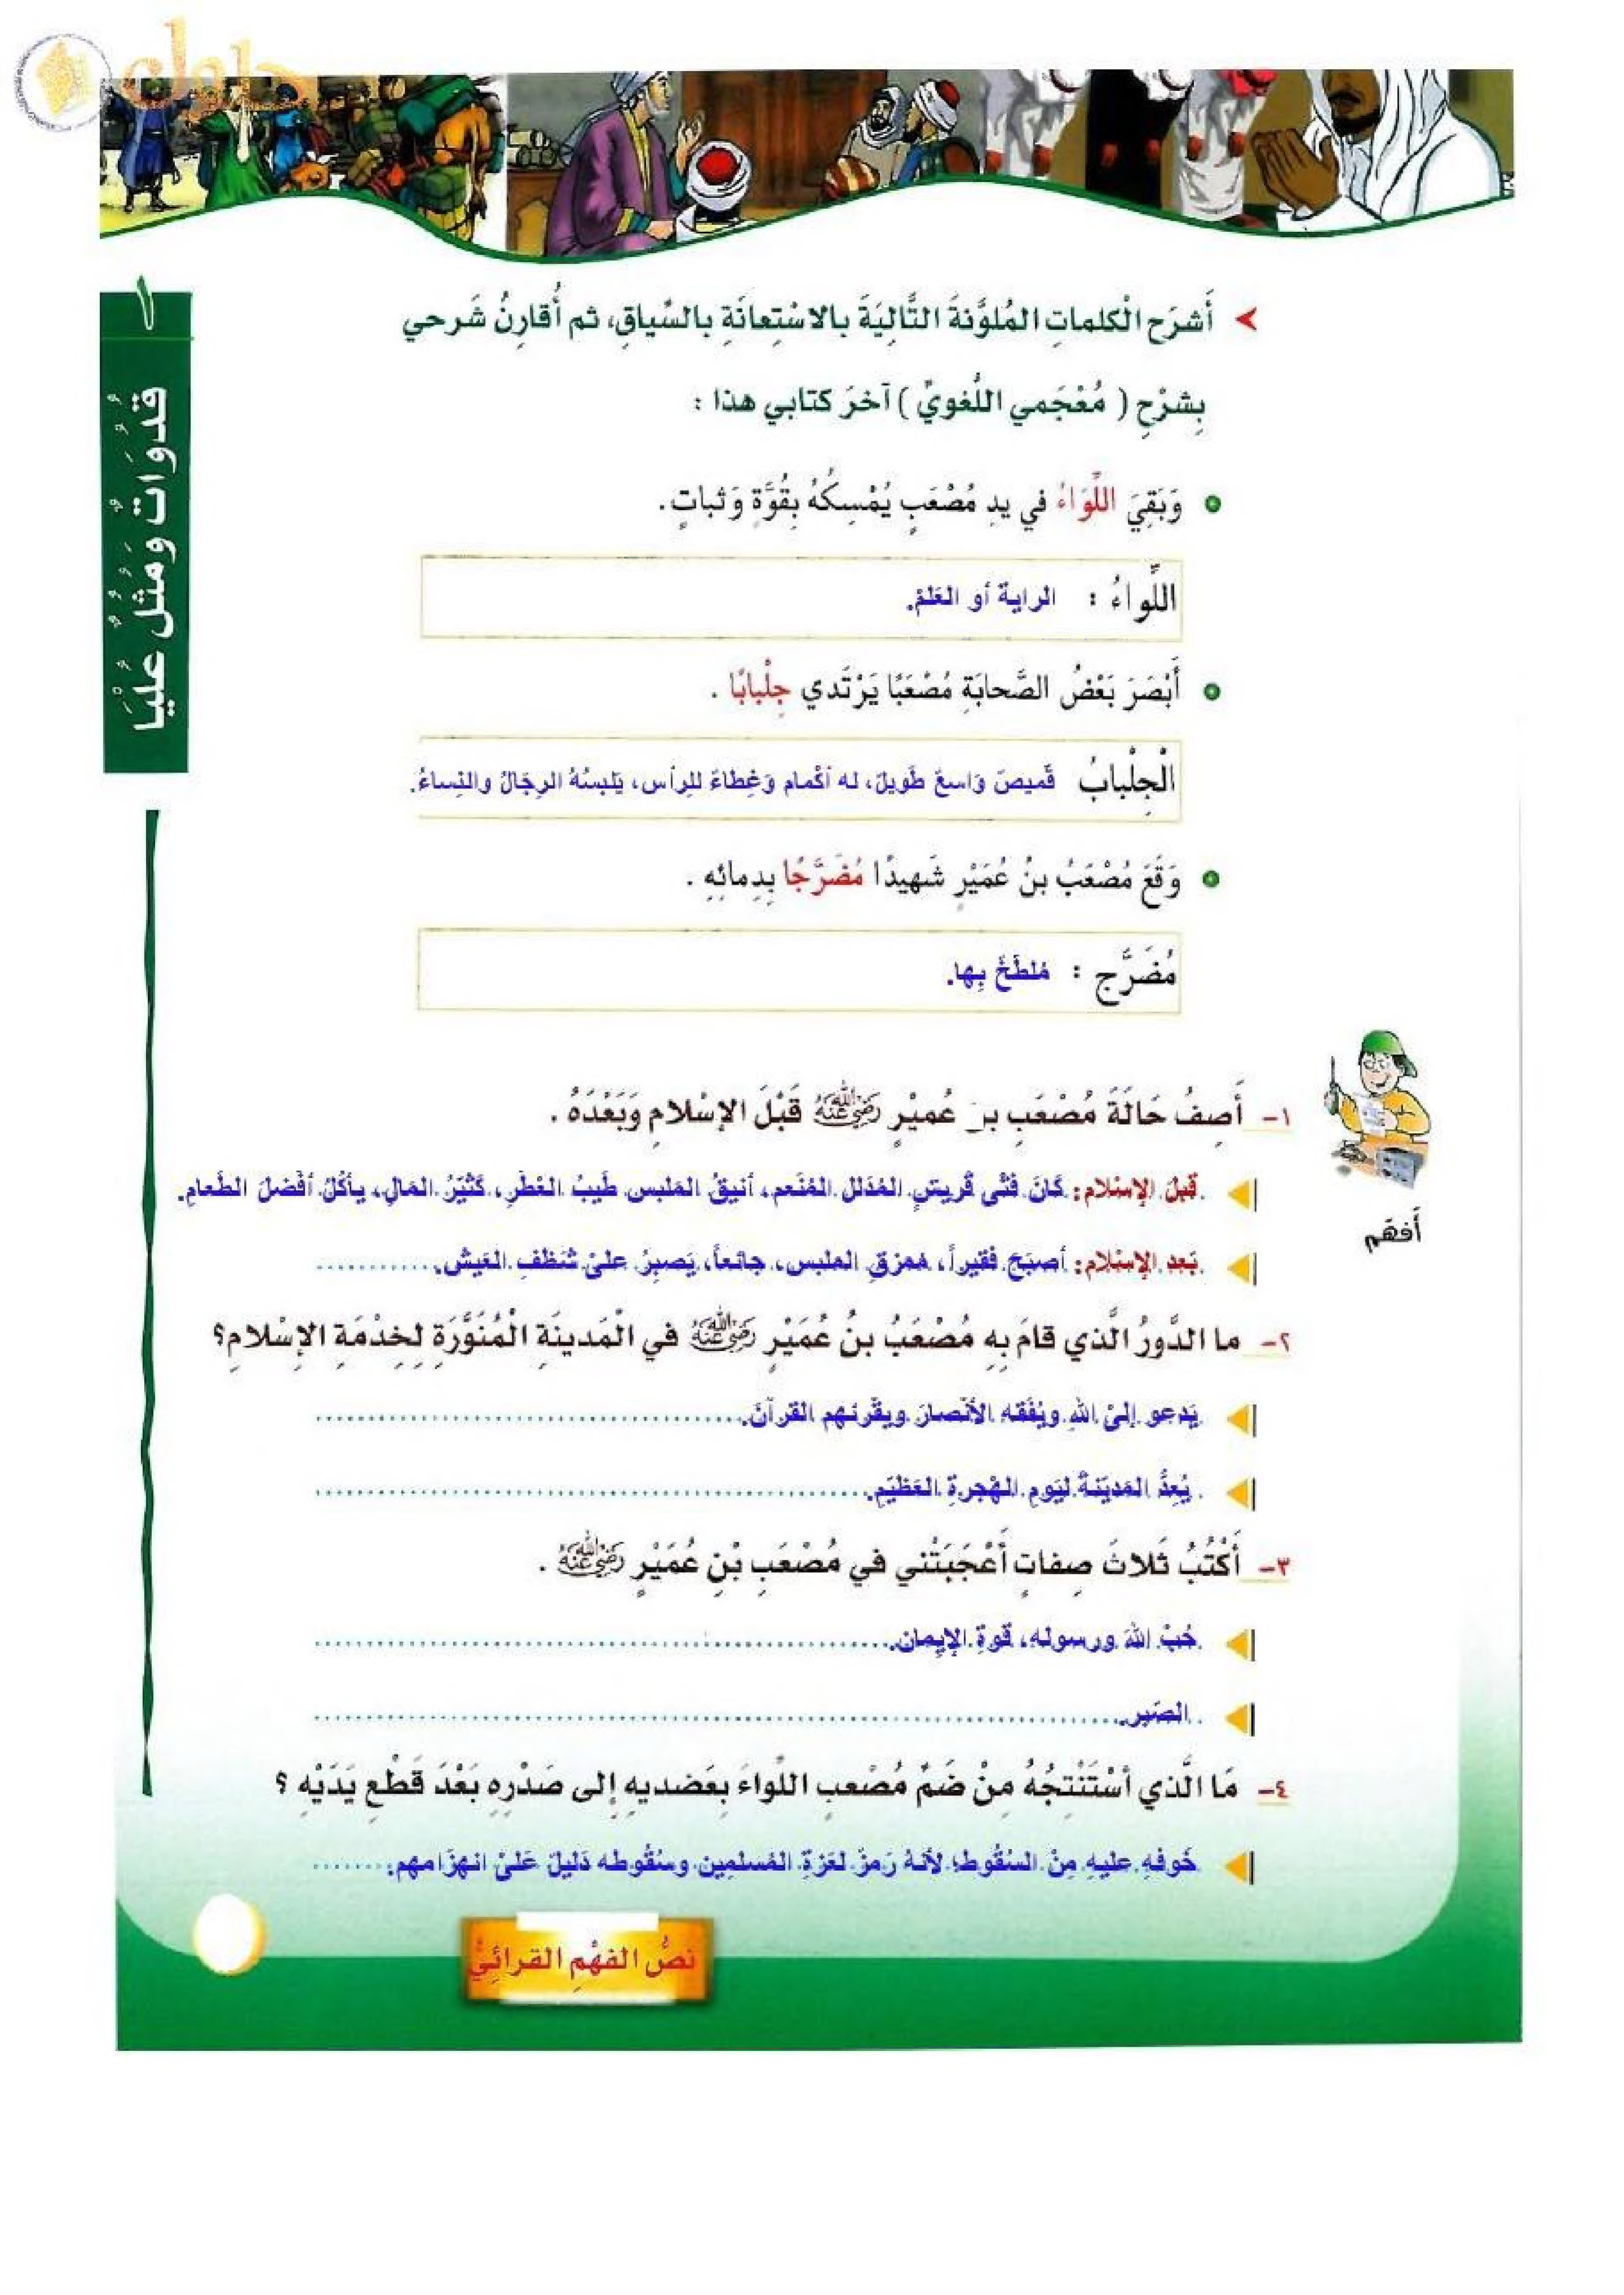 حلول
١
قُدُوَاتٌ ومُثُلٌ عُلْيَا
أَشرَح الْكلماتِ المُلوَّنةَ التَّالِيَةَ بالاسْتِعانَةِ بالسِّياقِ، ثم أُقارِنُ شَرحي
بِشرْحِ ( مُعْجَمي اللُّغويِّ ) آخرَ كتابي هذا :
وَبَقِيَ اللِّوَاءُ في يدِ مُصْعَبٍ يُمْسِكُهُ بِقُوَّةٍ وَثباتٍ.
اللِّواءُ : الراية أو العَلمْ.
أَبْصَرَ بَعْضُ الصَّحابَةِ مُصْعَبًا يَرْتَدي جِلْبابًا .
الْجِلْبابُ قَميصَ وَاسعٌ طَويلٌ، له أكْمام وَغِطاءٌ للرأس، يَلبسُهُ الرجَالُ والنِساءُ.
وَقَعَ مُصْعَبُ بنُ عُمَيْرٍ شَهيدًا مُضَرَّجًا بِدِمائِهِ .
مُضَرَّج : مُلطَخٌ بِها.
١- أَصِفُ حَالَةَ مُصْعَبِ بنِ عُميْرٍ رضي الله عنه قَبْلَ الإسْلامِ وَبَعْدَهُ .
قَبلَ الإسْلام: كَانَ فَتَى قُريشٍ المُدَلل المُنَعم، أنيقُ المَلبس طَيبُ العْطر، كَثيْرُ المَالِ، يأكُلُ أفْضلَ الطَعامِ.
أفهَم
بَعد الإسْلام: أصبَحَ فَقيراً، مُمزقِ الملبس، جائعاً، يَصبرُ علىْ شَظفِ العَيشْ.
٢- ما الدَّورُ الَّذي قامَ بِهِ مُصْعَبُ بنُ عُمَيْرٍ رضي الله عنه في الْمَدينَةِ الْمُنَوَّرَةِ لِخِدْمَةِ الإِسْلامِ؟
يَدعو إلىْ اللهِ ويُفَقه الأنْصارَ ويقْرئهم القرآنَ.
يُعِدُّ المَديْنةُ ليَومِ الهْجرةِ العَظيْمِ.
٣- أَكْتُبُ ثَلاثَ صِفاتٍ أَعْجَبَتْني في مُصْعَبِ بْنِ عُمَيْرٍ رضي الله عنه .
حُبْ اللهَ ورسوله، قوةِ الإيِمانِ.
الصَبر.
٤- مَا الَّذي أسْتَنْتِجُهُ مِنْ ضَمِّ مُصْعبٍ اللِّواءَ بِعَضديهِ إِلى صَدْرِهِ بَعْدَ قَطْعِ يَدَيْهِ ؟
خَوفهِ عليهِ مِنْ السَقُوطِ؛ لأنهُ رَمزٌ لعَزةِ المُسلمِين وسُقُوطه دَليلٌ عَلىْ انهزَامهم.
نصُّ الفهْمِ القرائِيِّ